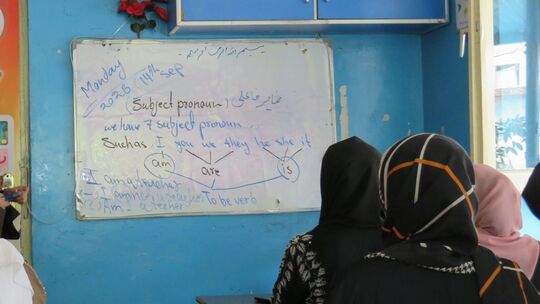 بسم الله الرحمن الرحیم
Monday 14th sep
2026
Subject pronoun / ضمایر فاعلی
we have 7 subject pronoun
Suchas I you we they he she it
am are is
I am a teacher
To be verb